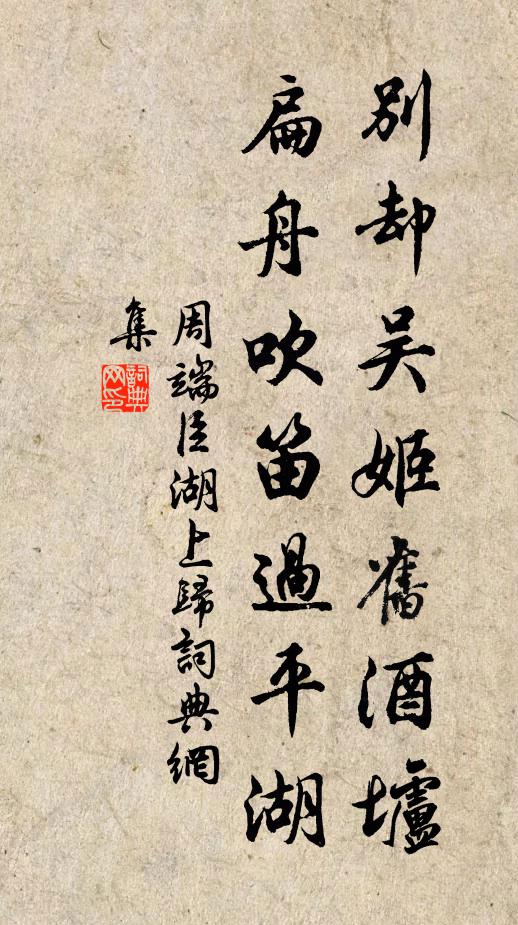 别却吴姬舊酒壚
扁舟吹笛過平湖
周端臣湖上歸詞典網
集
詞典網印